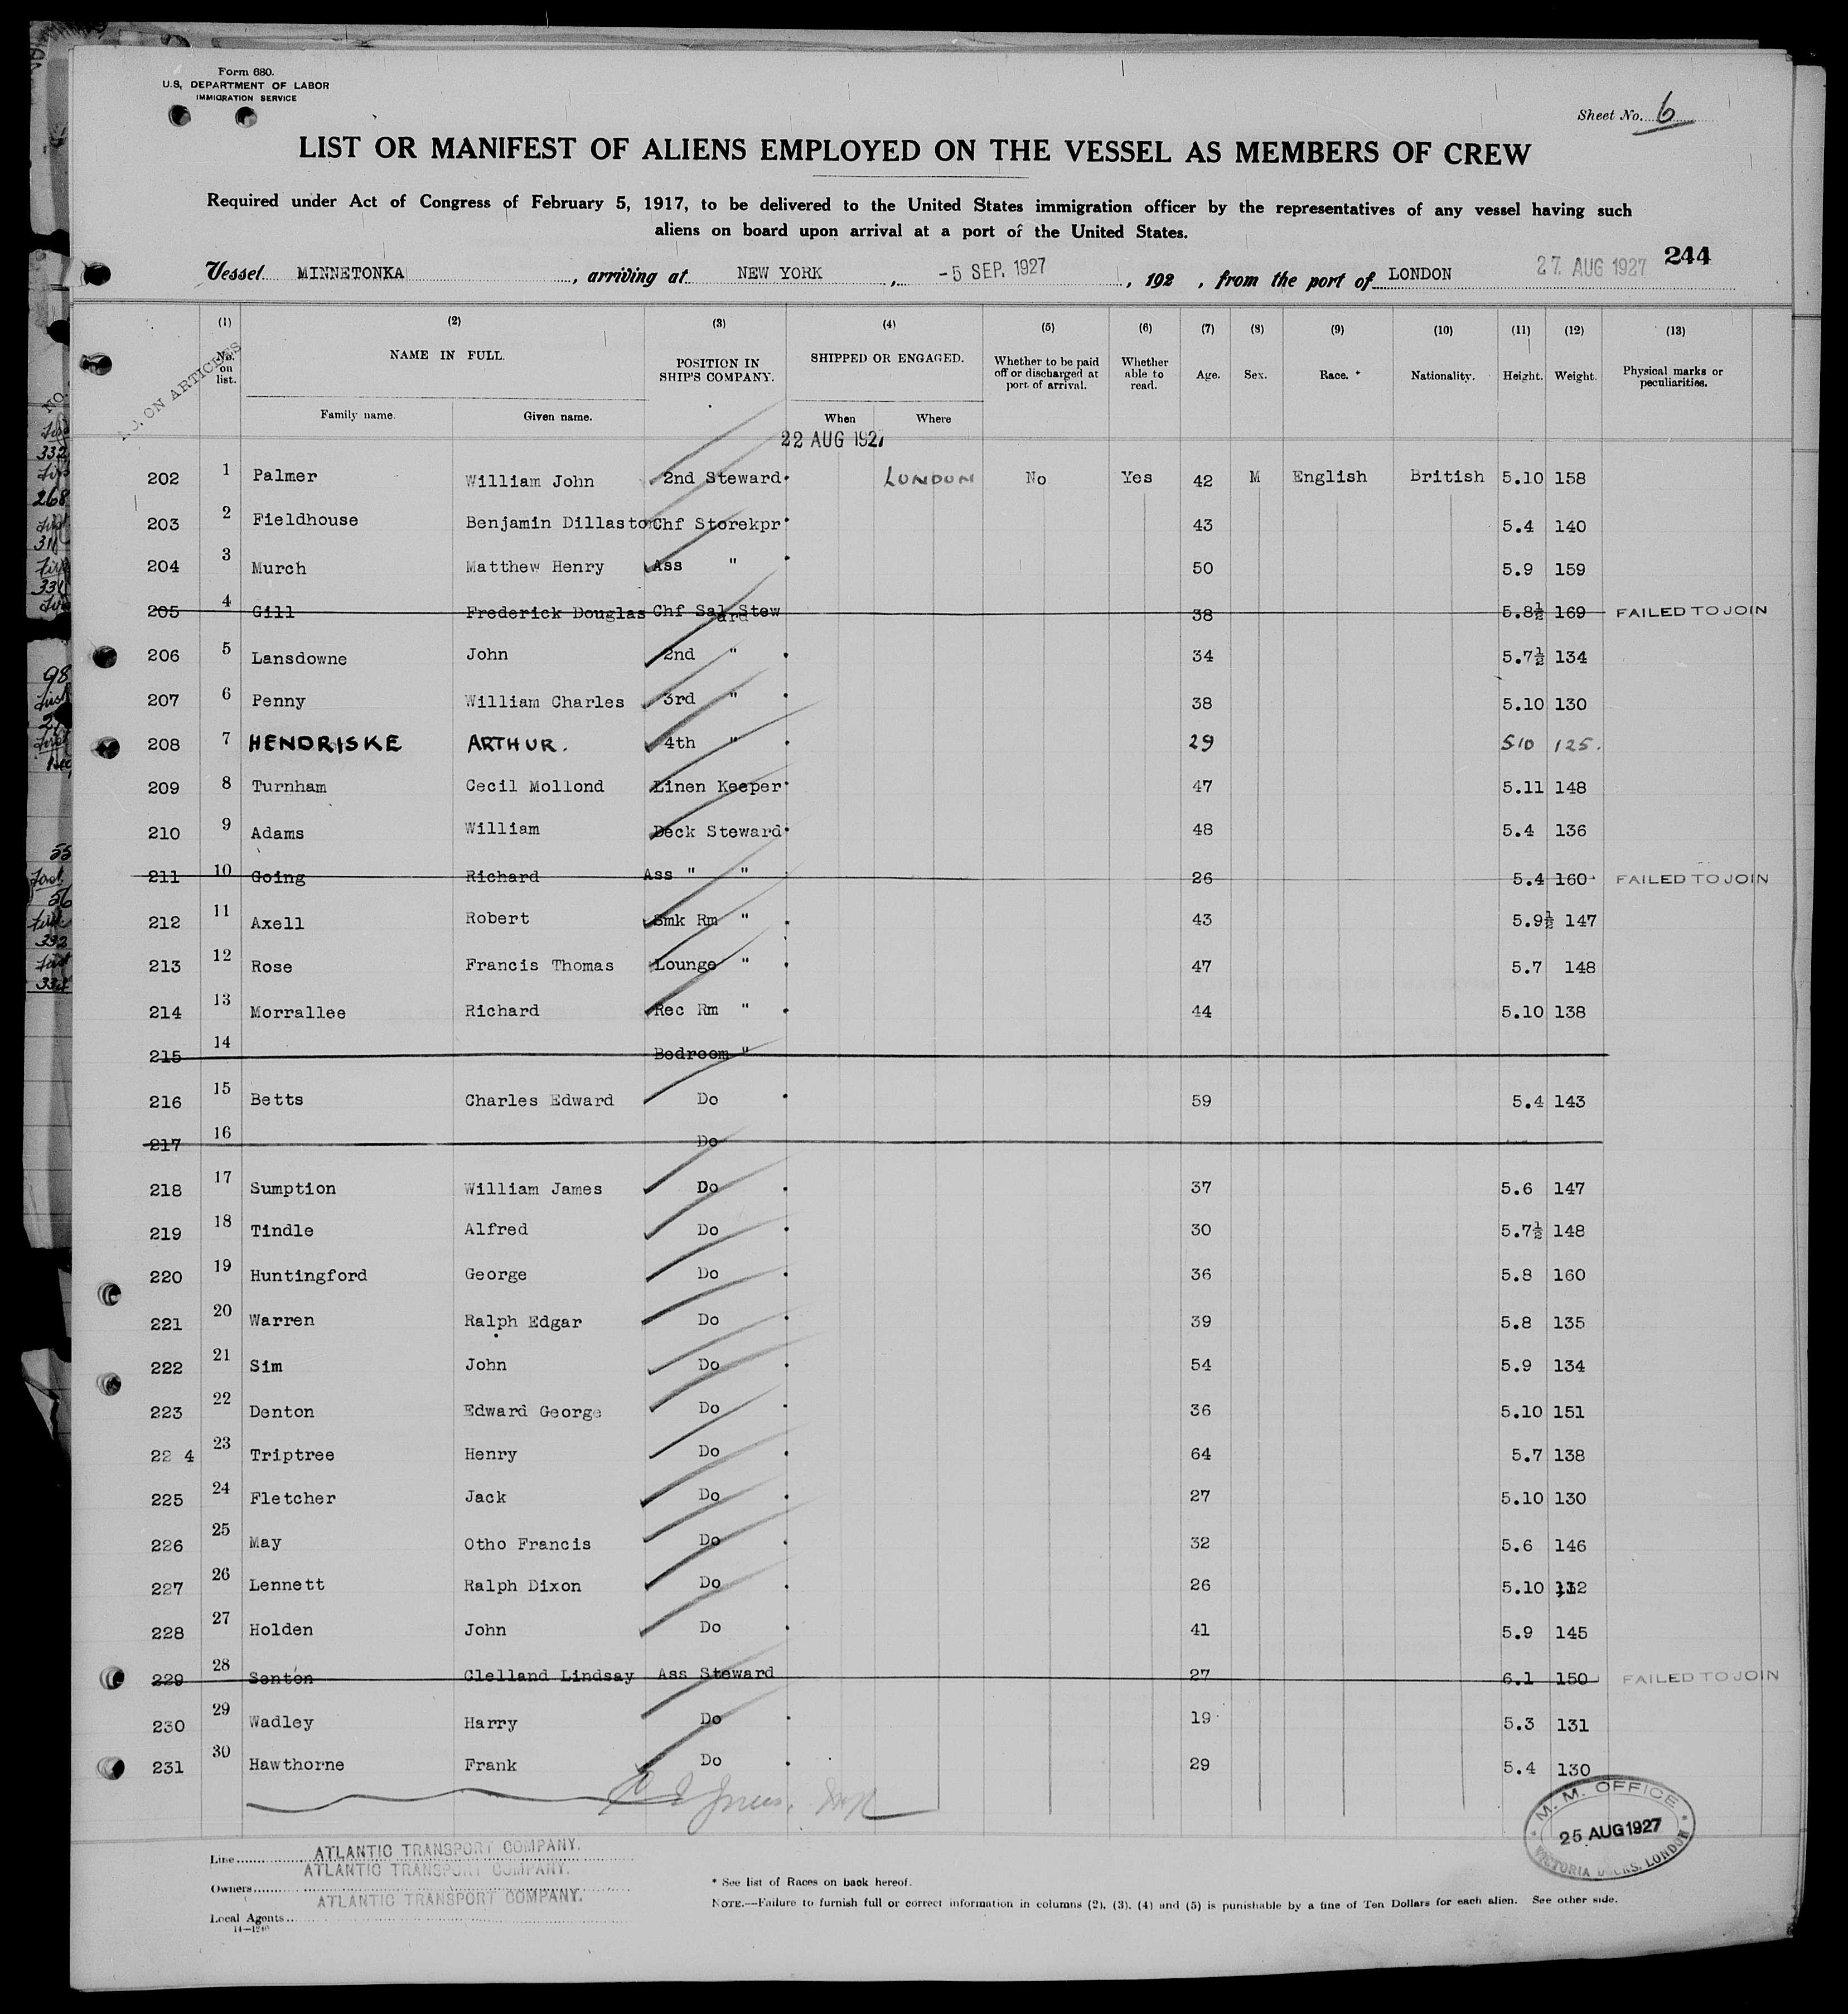 Form 680.
U.S. DEPARTMENT OF LABOR
IMMIGRATION SERVICE
Sheet No. 6
LIST OR MANIFEST OF ALIENS EMPLOYED ON THE VESSEL AS MEMBERS OF CREW
Required under Act of Congress of February 5, 1917, to be delivered to the United States immigration officer by the representatives of any vessel having such
aliens on board upon arrival at a port of the United States.
244
Vessel MINNETONKA, arriving at NEW YORK, -5 SEP. 1927, 192 , from the port of LONDON 27 AUG 1927
(1) (2) (3) (4) (5) (6) (7) (8) (9) (10) (11) (12) (13)
NO. ON ARTICLES
No. on list. NAME IN FULL. POSITION IN SHIP'S COMPANY. SHIPPED OR ENGAGED. Whether to be paid off or discharged at port of arrival. Whether able to read. Age. Sex. Race. * Nationality. Height. Weight. Physical marks or peculiarities.
Family name. Given name. When Where
22 AUG 1927
202 1 Palmer William John 2nd Steward LONDON No Yes 42 M English British 5.10 158
203 2 Fieldhouse Benjamin Dillaston Chf Storekpr 43 5.4 140
204 3 Murch Matthew Henry Ass " 50 5.9 159
205 4 Gill Frederick Douglas Chf Sal Steward 38 5.8½ 169 FAILED TO JOIN
206 5 Lansdowne John 2nd " 34 5.7½ 134
207 6 Penny William Charles 3rd " 38 5.10 130
208 7 HENDRISKE ARTHUR. 4th " 29 5 10 125.
209 8 Turnham Cecil Mollond Linen Keeper 47 5.11 148
210 9 Adams William Deck Steward 48 5.4 136
211 10 Going Richard Ass " " 26 5.4 160 FAILED TO JOIN
212 11 Axell Robert Smk Rm " 43 5.9½ 147
213 12 Rose Francis Thomas Lounge " 47 5.7 148
214 13 Morrallee Richard Rec Rm " 44 5.10 138
215 14 Bedroom "
216 15 Betts Charles Edward Do 59 5.4 143
217 16 Do
218 17 Sumption William James Do 37 5.6 147
219 18 Tindle Alfred Do 30 5.7½ 148
220 19 Huntingford George Do 36 5.8 160
221 20 Warren Ralph Edgar Do 39 5.8 135
222 21 Sim John Do 54 5.9 134
223 22 Denton Edward George Do 36 5.10 151
22 4 23 Triptree Henry Do 64 5.7 138
225 24 Fletcher Jack Do 27 5.10 130
226 25 May Otho Francis Do 32 5.6 146
227 26 Lennett Ralph Dixon Do 26 5.10
228 27 Holden John Do 41 5.9 145
229 28 Senton Clelland Lindsay Ass Steward 27 6.1 150 FAILED TO JOIN
230 29 Wadley Harry Do 19 5.3 131
231 30 Hawthorne Frank Do 29 5.4 130
M. M. OFFICE
25 AUG 1927
VICTORIA DOCKS, LONDON
Line ATLANTIC TRANSPORT COMPANY.
Owners ATLANTIC TRANSPORT COMPANY.
Local Agents ATLANTIC TRANSPORT COMPANY.
* See list of Races on back hereof.
NOTE.—Failure to furnish full or correct information in columns (2), (3), (4) and (5) is punishable by a fine of Ten Dollars for each alien. See other side.